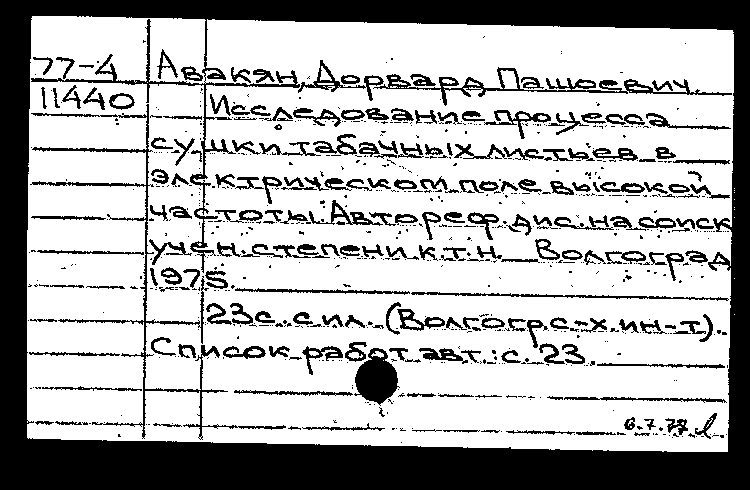 77-4 Авакян, Дорвард Пашоевич.
11440 Исследование процесса
сушки табачных листьев в
электрическом поле высокой
частоты. Автореф. дис. на соиск
учен. степени к.т.н. Волгоград
1975.
23с. с ил. (Волгогр. с-х. ин-т).
Список работ авт.: с. 23.
6.7.77